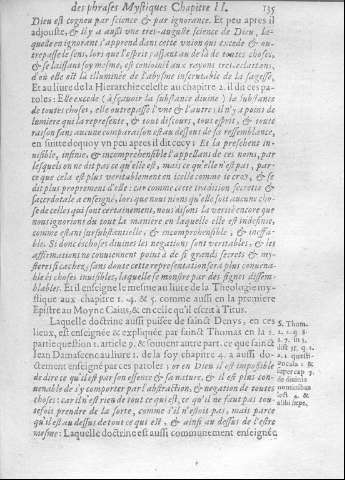 des phrases Mystiques Chapitre II. 135
Dieu est cogneu par science & par ignorance. Et peu apres il
adjouste, & il y a aussi une tres-auguste science de Dieu, la-
quelle en ignorant s'apprend dans cette union qui excede & ou-
trepasse le sens, lors que l'esprit s'assant au de là de toutes choses,
& se laissant soy mesme, est uny aux rayons tres-éclattans,
d'où elle est là illuminée de l'abysme inscrutable de la sagesse.
Et au livre de la Hierarchie celeste au chapitre 2. il dit ces pa-
roles: Elle excede (à sçavoir la substance divine) la substance
de toutes choses, elle outrepasse l'une & l'autre: il n'y a point de
lumiere qui la represente, & tout discours, tout esprit, & toute
raison sans aucune comparaison est au dessous de sa ressemblance,
en suitte dequoy un peu apres il dit cecy: Et la preschent in-
visible, infinie, & incomprehensible l'appellans de ces noms, par
lesquels on ne dit pas ce qu'elle est, mais ce qu'elle n'est pas, par-
ce que cela est plus veritablement en icelle comme ie croy, & se
dit plus proprement d'elle: car comme cette tradition secrette &
sacerdotale a enseigné, lors que nous nions qu'elle soit aucune cho-
se de celles qui sont certainement, nous disons la verité encore que
nous ignorions du tout la maniere en laquelle elle est indefinie,
comme estant sursubstantielle, & incomprehensible, & ineffa-
ble. Si donc és choses divines les negations sont veritables, & les
affirmations ne conviennent point à de si grands secrets & my-
steres si cachez, sans doute cette representation sera plus convena-
ble és choses invisibles, laquelle se monstre par des signes dissem-
blables. Et il enseigne le mesme au livre de la Theologie my-
stique aux chapitre 1. 4. & 5. comme aussi en la premiere
Epistre au Moyne Caius, & en celle qu'il escrit à Titus.
Laquelle doctrine aussi puisee de sainct Denys, en ces
lieux, est enseignée & expliquée par sainct Thomas en la 1.
partie question 1. article 9, & souvent autre part. ce que sainct
Jean Damascene au livre 1. de la foy chapitre 4. a aussi do-
ctement enseigné par ces paroles; or en Dieu il est impossible
de dire ce qu'il est par son essence & sa nature, & il est plus con-
venable de i'y comporter par l'abstraction, & negation de toutes
choses: car il n'est rien de tout ce qui est, ce qu'il ne faut pas tou-
tesfois prendre de la sorte, comme s'il n'estoit pas, mais parce
qu'il est au dessus de tout ce qui est, & ainsi au dessus de l'estre
mesme: Laquelle doctrine est aussi communement enseignée
S. Thom.
1. 2. q. 8.
a. 7. in 3.
dist 35. q. 2.
a. 2. questi-
&
super cap 7.
de divinis
nominibus
lect 4. &
alibi sæpe.